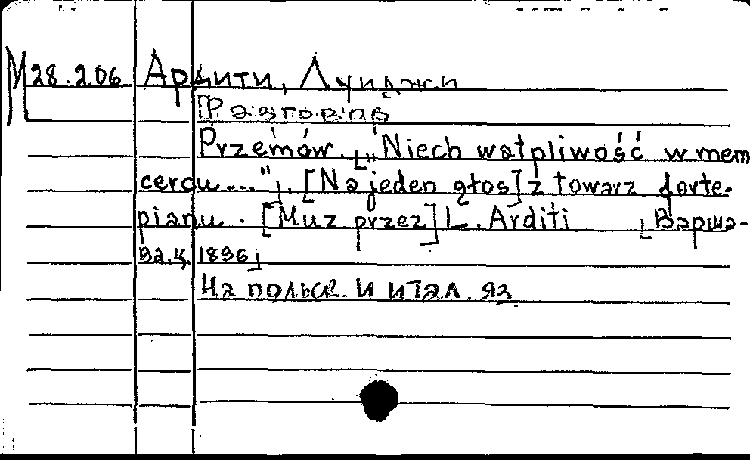 М 28.206 Ардити, Луиджи
[Разговор
Przemów. [„Niech wątpliwość w mem
cercu..."]. [Na jeden głos] z towarz forte-
pianu. [Muz przez] L. Arditi [Варша-
ва, ц. 1896]
На польск. и итал. яз